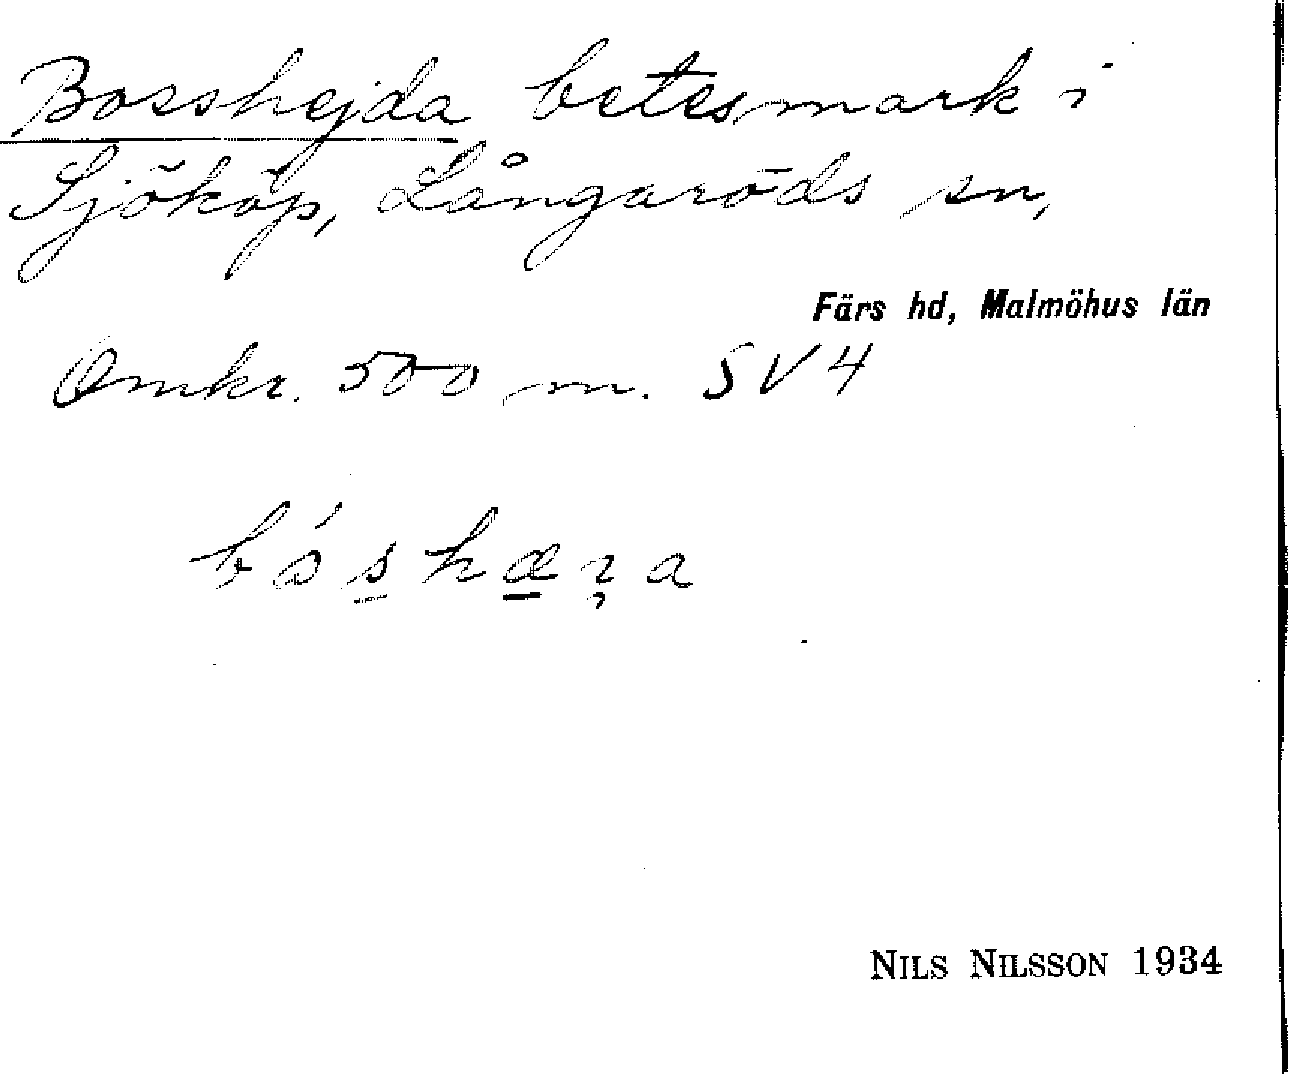 Bosshejda betesmark i
Sjököp, Långaröds sn,
Färs hd, Malmöhus län
Omkr. 500 m. SV 4
NILS NILSSON 1934